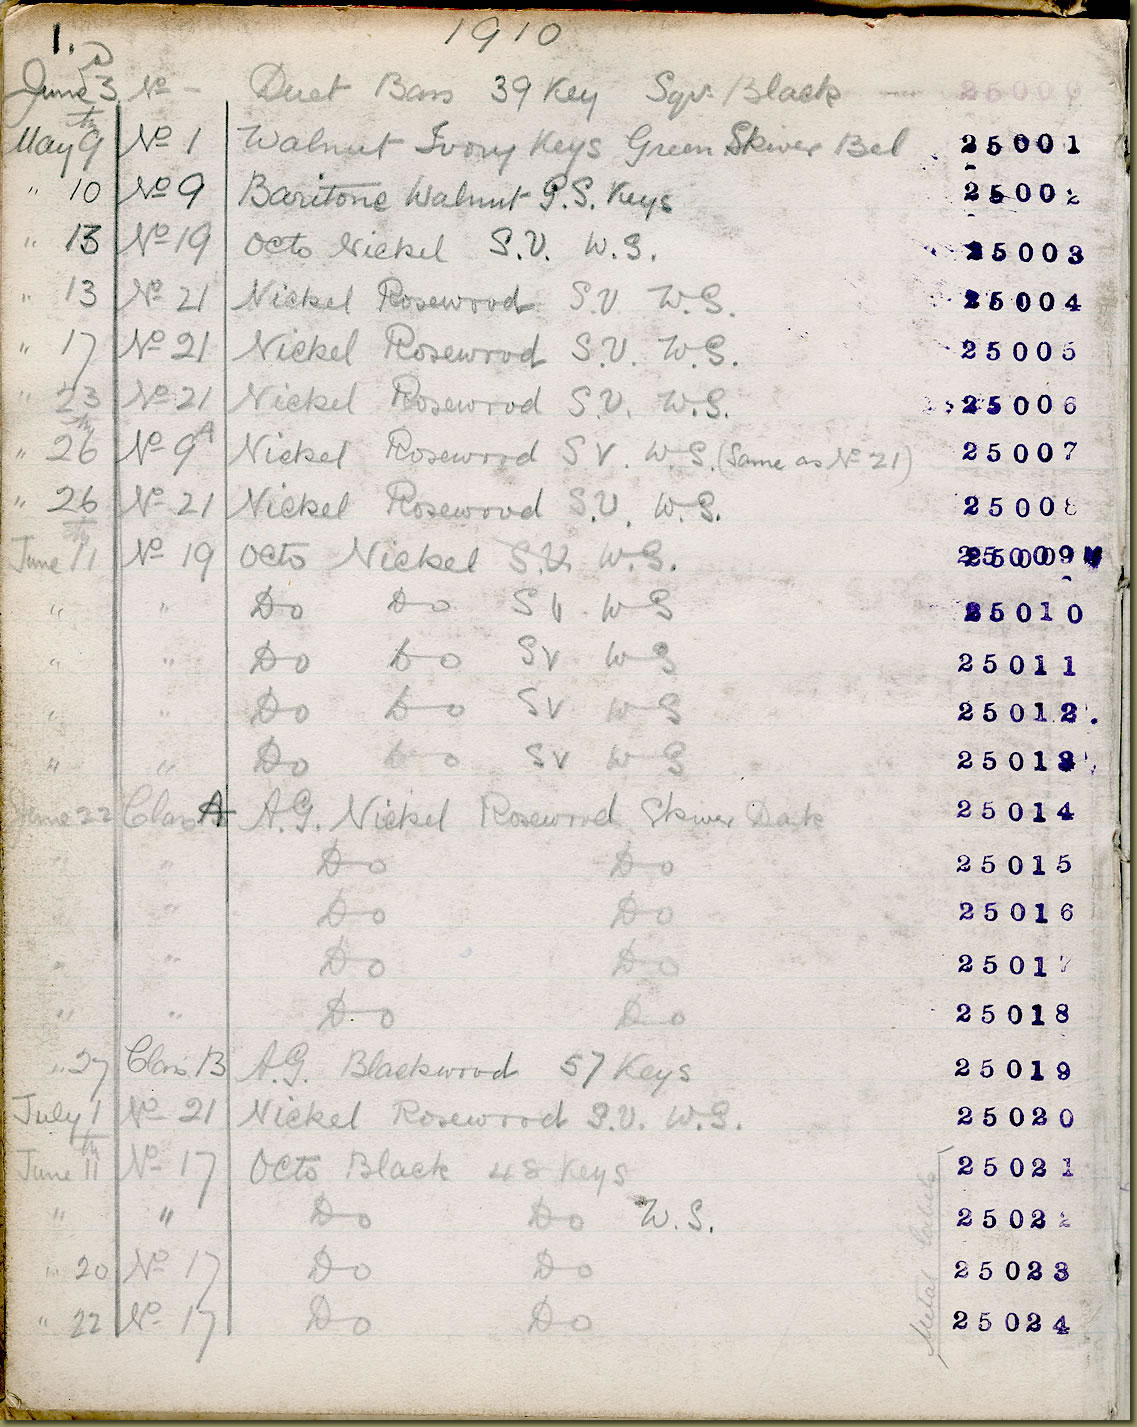 1. 1910
June 3 No - Duet Bass 39 Key Sqr. Black — 25000
May 9th No 1 Walnut Ivory Keys Green Skiver Bel 25001
" 10 No 9 Baritone Walnut G.S. Keys 25002
" 13 No 19 Octo Nickel S.V. W.S. 25003
" 13 No 21 Nickel Rosewood S.V. W.S. 25004
" 17 No 21 Nickel Rosewood S.V. W.S. 25005
" 23 No 21 Nickel Rosewood S.V. W.S. 25006
" 26th No 9A Nickel Rosewood S V. W.S. (Same as No 21) 25007
" 26 No 21 Nickel Rosewood S.V. W.S. 25008
June 11th No 19 Octo Nickel S.V. W.S. 25009
" " Do Do S V. W S 25010
" " Do Do S V W S 25011
" " Do Do S V W S 25012
" " Do Do S V W S 25013
June 22 Class A A.G. Nickel Rosewood Skiver Dark 25014
" " Do Do 25015
" " Do Do 25016
" " Do Do 25017
" " Do Do 25018
" 27 Class B A.G. Blackwood 57 Keys 25019
July 1 No 21 Nickel Rosewood S.V. W.S. 25020
June 11th No 17 Octo Black 48 Keys 25021
" " Do Do W.S. 25022
" 20 No 17 Do Do 25023
" 22 No 17 Do Do 25024
Metal